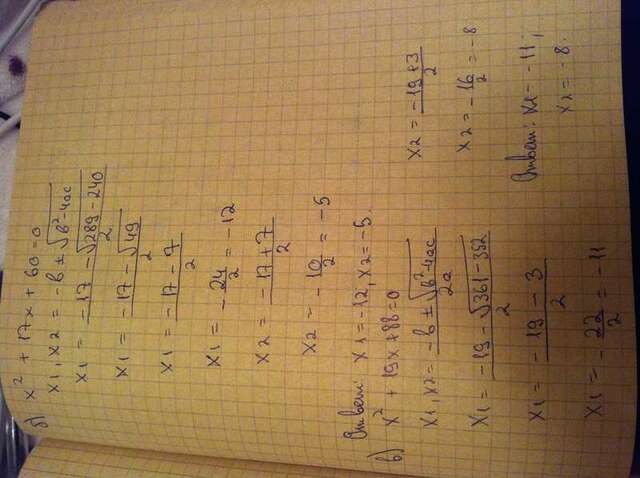 б) x² + 17x + 60 = 0
x1, x2 = -b ± √b²-4ac
x1 = -17 - √289-240 / 2
x1 = -17 - √49 / 2
x1 = -17 - 7 / 2
x1 = - 24/2 = -12
x2 = -17+7 / 2
x2 = - 10/2 = -5
Ответ: x1 = -12, x2 = -5.
в) x² + 19x + 88 = 0
x1, x2 = -b ± √b²-4ac / 2a
x1 = -19 - √361-352 / 2
x1 = -19 - 3 / 2
x1 = - 22/2 = -11
x2 = -19+3 / 2
x2 = - 16/2 = -8
Ответ: x1 = -11;
x2 = -8.